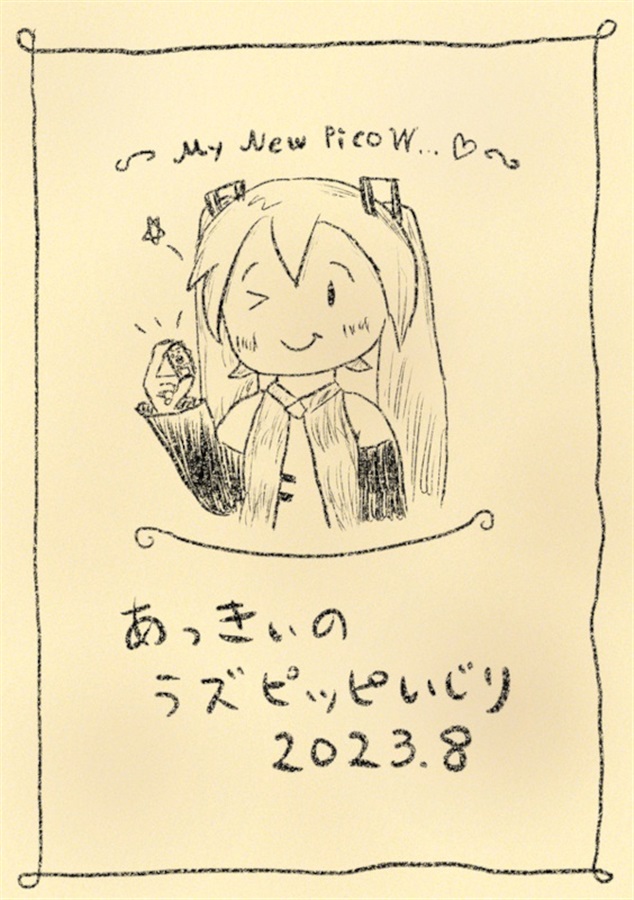 My New PicoW...♡
あっきぃの
ラズピッピいじり
2023.8